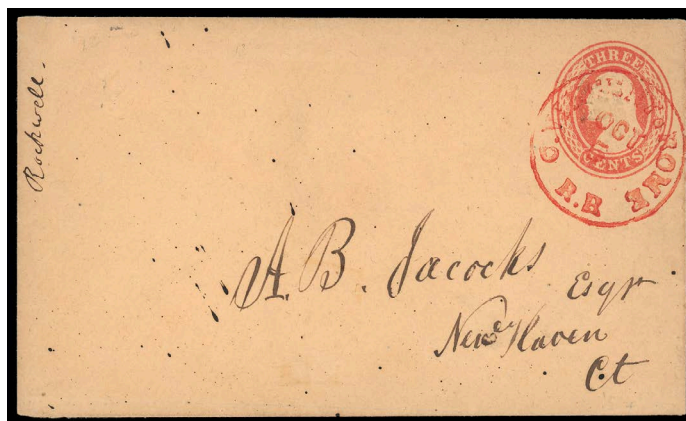 Rockwell.
THREE
CENTS
R.R
A. B. Jacocks
Esqr
New Haven
Ct